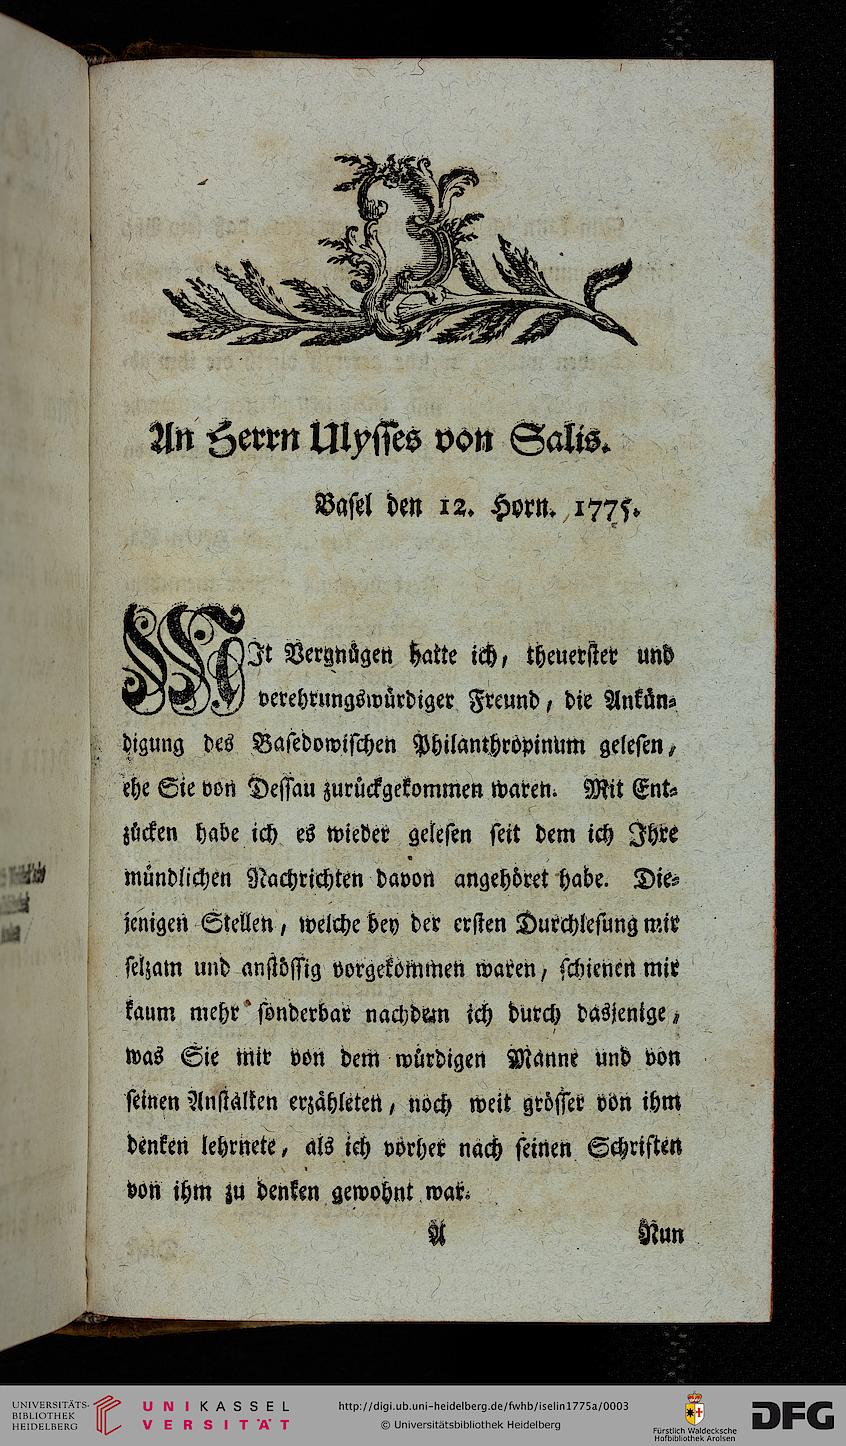 An Herrn Ulysses von Salis.
Basel den 12. Horn. 1775.
MIt Vergnügen hatte ich, theuerster und
verehrungswürdiger Freund, die Ankün-
digung des Basedowischen Philanthropinum gelesen,
ehe Sie von Dessau zurückgekommen waren. Mit Ent-
zücken habe ich es wieder gelesen seit dem ich Ihre
mündlichen Nachrichten davon angehöret habe. Die-
jenigen Stellen, welche bey der ersten Durchlesung mir
selzam und anstössig vorgekommen waren, schienen mir
kaum mehr sonderbar nachdem ich durch dasjenige,
was Sie mir von dem würdigen Manne und von
seinen Anstalten erzähleten, noch weit grösser von ihm
denken lehrnete, als ich vorher nach seinen Schriften
von ihm zu denken gewohnt war.
A Nun
UNIVERSITÄTS-
BIBLIOTHEK
HEIDELBERG
UNIKASSEL
VERSITÄT
http://digi.ub.uni-heidelberg.de/fwhb/iselin1775a/0003
© Universitätsbibliothek Heidelberg
Fürstlich Waldecksche
Hofbibliothek Arolsen
DFG